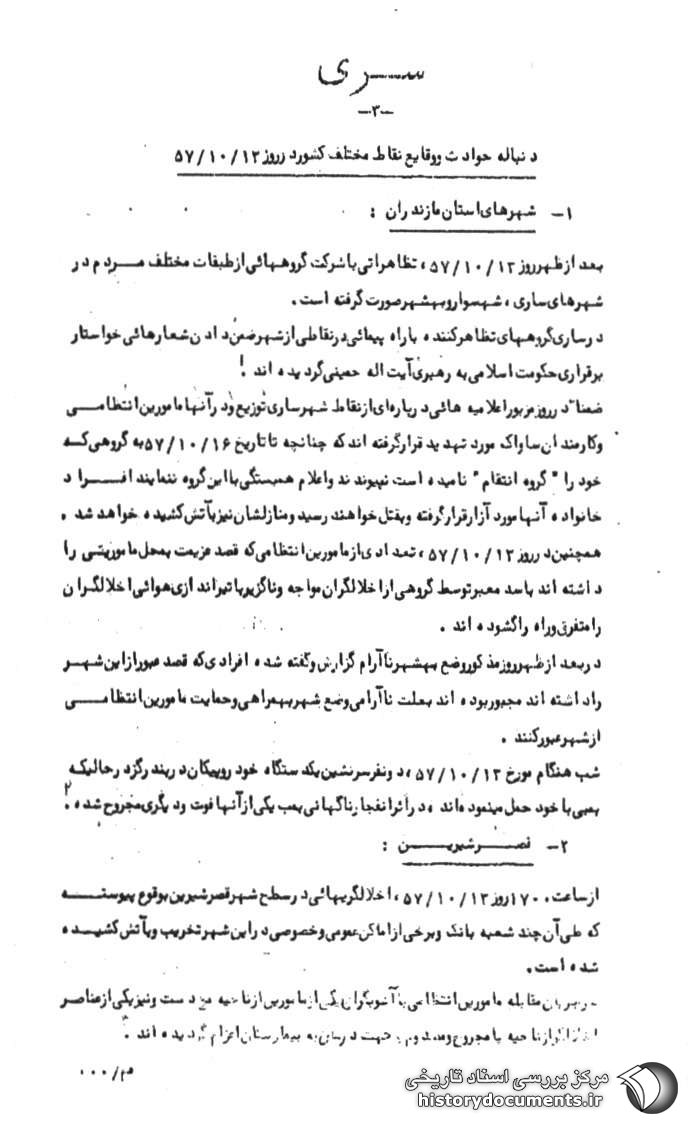 سری
-۳-
دنباله حوادث و وقایع نقاط مختلف کشور در روز ۵۷/۱۰/۱۳
۱- شهرهای استان مازندران :
بعد از ظهر روز ۵۷/۱۰/۱۳ ، تظاهراتی با شرکت گروههائی از طبقات مختلف مردم در
شهرهای ساری ، شهسوار و بهشهر صورت گرفته است .
در ساری گروههای تظاهر کننده با راه پیمائی در نقاطی از شهر ضمن دادن شعارهائی خواستار
برقراری حکومت اسلامی به رهبری آیت اله خمینی گردیده اند .
ضمنا" در روز مزبور اعلامیه هائی در پاره ای از نقاط شهر ساری توزیع و در آنها مامورین انتظامی
و کارمندان ساواک مورد تهدید قرار گرفته اند که چنانچه تا تاریخ ۵۷/۱۰/۱۶ به گروهی که
خود را " گروه انتقام " نامیده است نپیوندند و اعلام همبستگی با این گروه ننمایند افراد
خانواده آنها مورد آزار قرار گرفته و بقتل خواهند رسید و منازلشان نیز بآتش کشیده خواهد شد .
همچنین در روز ۵۷/۱۰/۱۳ ، تعدادی از مامورین انتظامی که قصد عزیمت بمحل ماموریتی را
داشته اند با سد معبر توسط گروهی از اخلالگران مواجه و ناگزیر با تیراندازی هوائی اخلالگران
را متفرق و راه را گشوده اند .
در بعد از ظهر روز مذکور وضع بهشهر ناآرام گزارش و گفته شده افرادی که قصد عبور از این شهر
را داشته اند مجبور بوده اند بعلت ناآرامی وضع شهر بهمراهی و حمایت مامورین انتظامی
از شهر عبور کنند .
شب هنگام مورخ ۵۷/۱۰/۱۳ ، دو نفر سرنشین یکدستگاه خودرو پیکان در بندر گز در حالیکه
بمبی با خود حمل مینموده اند ، در اثر انفجار ناگهانی بمب یکی از آنها فوت و دیگری مجروح شده .
۲- قصر شیرین :
از ساعت ۱۷۰۰ روز ۵۷/۱۰/۱۳ ، اخلالگریهائی در سطح شهر قصر شیرین بوقوع پیوسته
که طی آن چند شعبه بانک و برخی از اماکن عمومی و خصوصی در این شهر تخریب و بآتش کشیده
شده است .
در جریان مقابله مامورین انتظامی با آشوبگران یکی از مامورین از ناحیه مچ دست و نیز یکی از عناصر
اخلالگر از ناحیه پا مجروح و جهت درمان به بیمارستان اعزام گردیده اند .
۱۰۰۰/م
مرکز بررسی اسناد تاریخی
historydocuments.ir